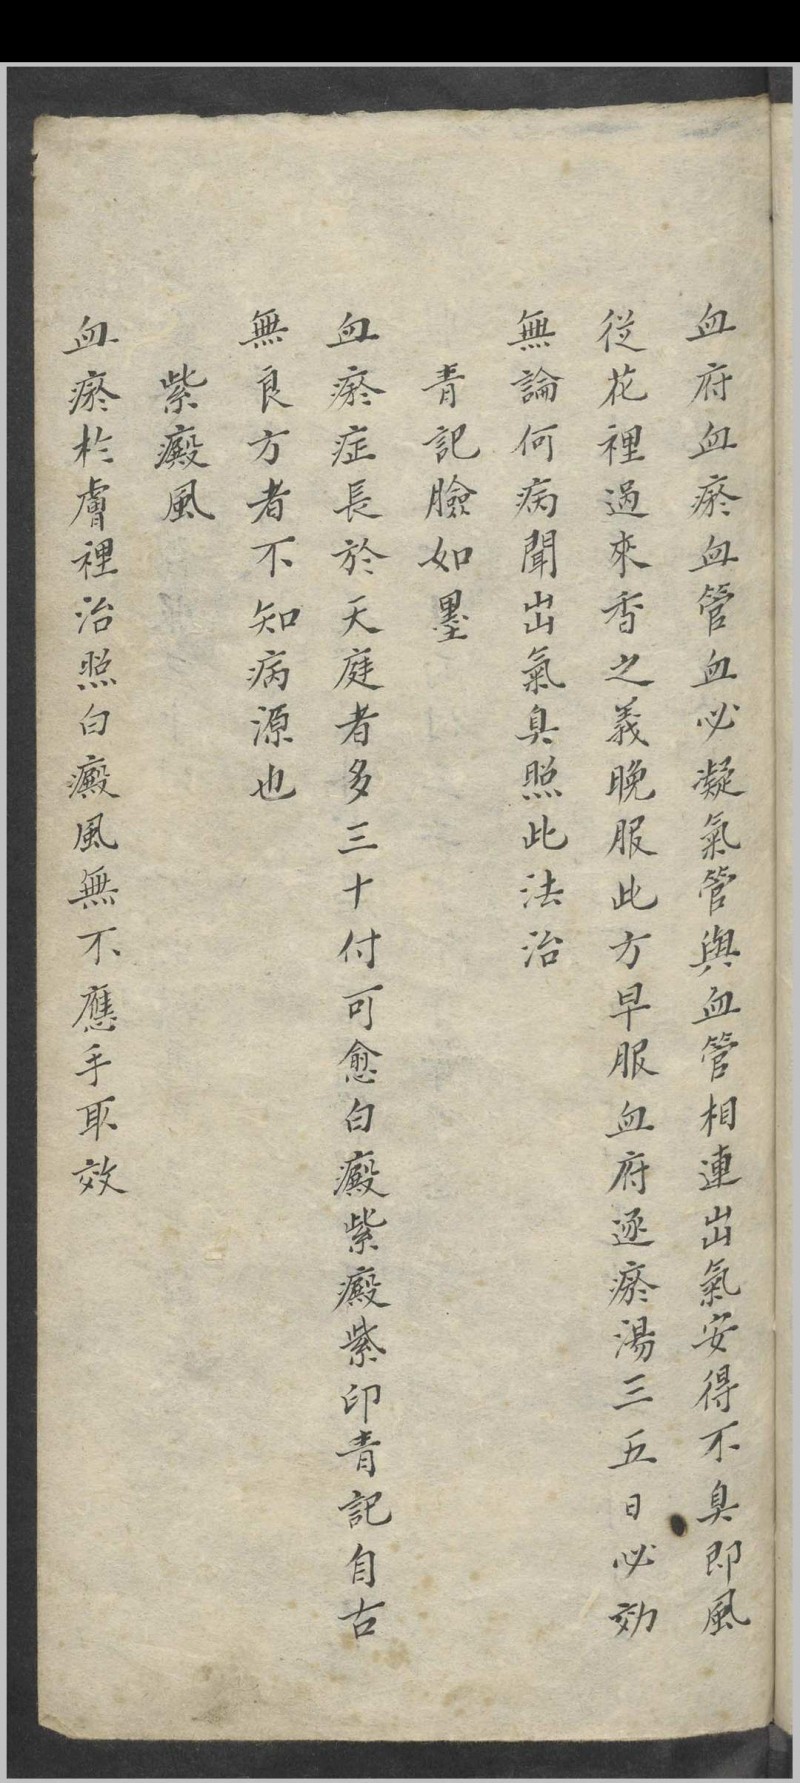 血府血瘀血管血必凝氣管與血管相連出氣安得不臭即風
從花裡過來香之義晚服此方早服血府逐瘀湯三五日必効
無論何病聞出氣臭照此法治
青記臉如墨
血瘀症長於天庭者多三十付可愈白癜紫癜紫印青記自古
無良方者不知病源也
紫癜風
血瘀於膚裡治照白癜風無不應手取效